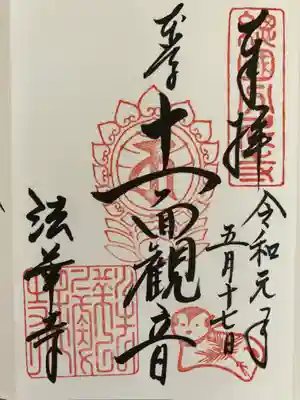 奉拝
令和元年
五月十七日
本尊
十一面觀音
法華寺